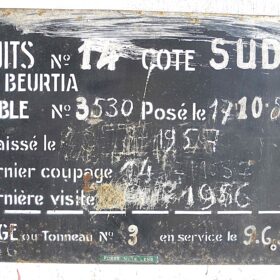 UITS No 14 COTE SUD
BEURTIA
BLE No 3530 Posé le 1710
aissé le 1957
rnier coupage 14
rnière visite 1986
GE ou Tonneau No 3 en service le 9.6.